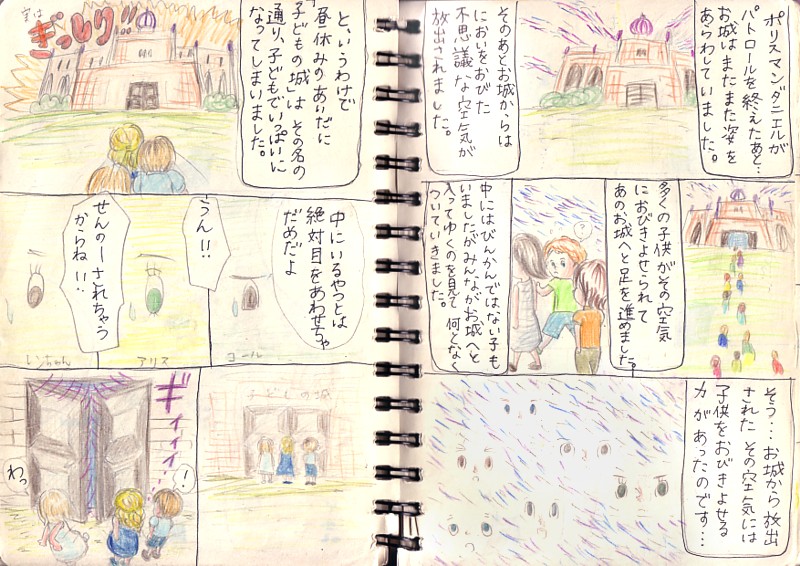 ポリスマンダニエルが
パトロールを終えたあと…
お城はまたまた姿を
あらわしていました。
そのあとお城からは
においをおびた
不思議な空気が
放出されました。
多くの子供がその空気
におびきよせられて
あのお城へと足を進めました。
?
中にはびんかんではない子も
いましたがみんながお城へと
入ってゆくのを見て何となく
ついていきました。
そう…お城から放出
された その空気には
子供をおびきよせる
力があったのです…
実は
ぎっしり!!
と、いうわけで
昼休みのあいだに
「子どもの城」は その名の
通り、子どもでいっぱいに
なってしまいました。
中にいるやつとは
絶対目をあわせちゃ
だめだよ
うん!!
せんのーされちゃう
からね!!
ヨール
アリス
レンちゃん
子どもの城
ギイイイ…
!
わっ